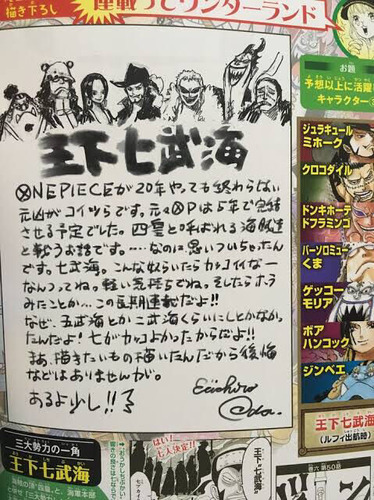 描き下ろし
連載ってワンダーランド
お題
予想以上に活躍
キャラクター
王下七武海
ⓍNEPIECEが20年やっても終わらない
元凶がコイツらです。元々ⓍPは5年で完結
させる予定でした。四皇と呼ばれる海賊達
と戦うお話です。……なのに思いついちゃったん
です。七武海。こんな奴らいたらカッコイイなー
なんつってね。軽い気持ちでね。そしたらホラ
みたことか…この長期連載だよ!!
なぜ、五武海とか三武海くらいにしとかなかっ
たんだよ!七がカッコよかったからだよ!!
まあ、描きたいもの描いたんだから後悔
などはありませんが。
あるよ少し!!
Eiichiro
Oda.
ジュラキュール
ミホーク
クロコダイル
ドンキホーテ
ドフラミンゴ
バーソロミュー
くま
ゲッコー
モリア
ボア
ハンコック
ジンベエ
王下七武海
(ルフィ出航時)
巻六 第50話
三大勢力の一角
王下七武海
はい!
七人決定!!